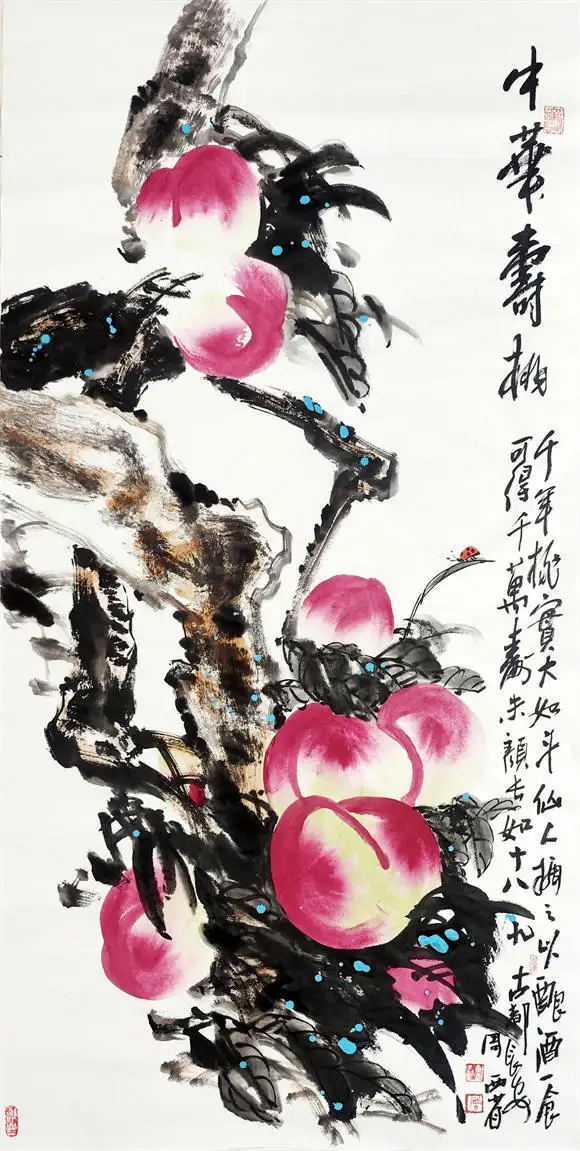 中華壽桃
千年桃實大如斗仙人摘之以釀酒一食
可得千萬壽朱顏長如十八九
古都長安
周西